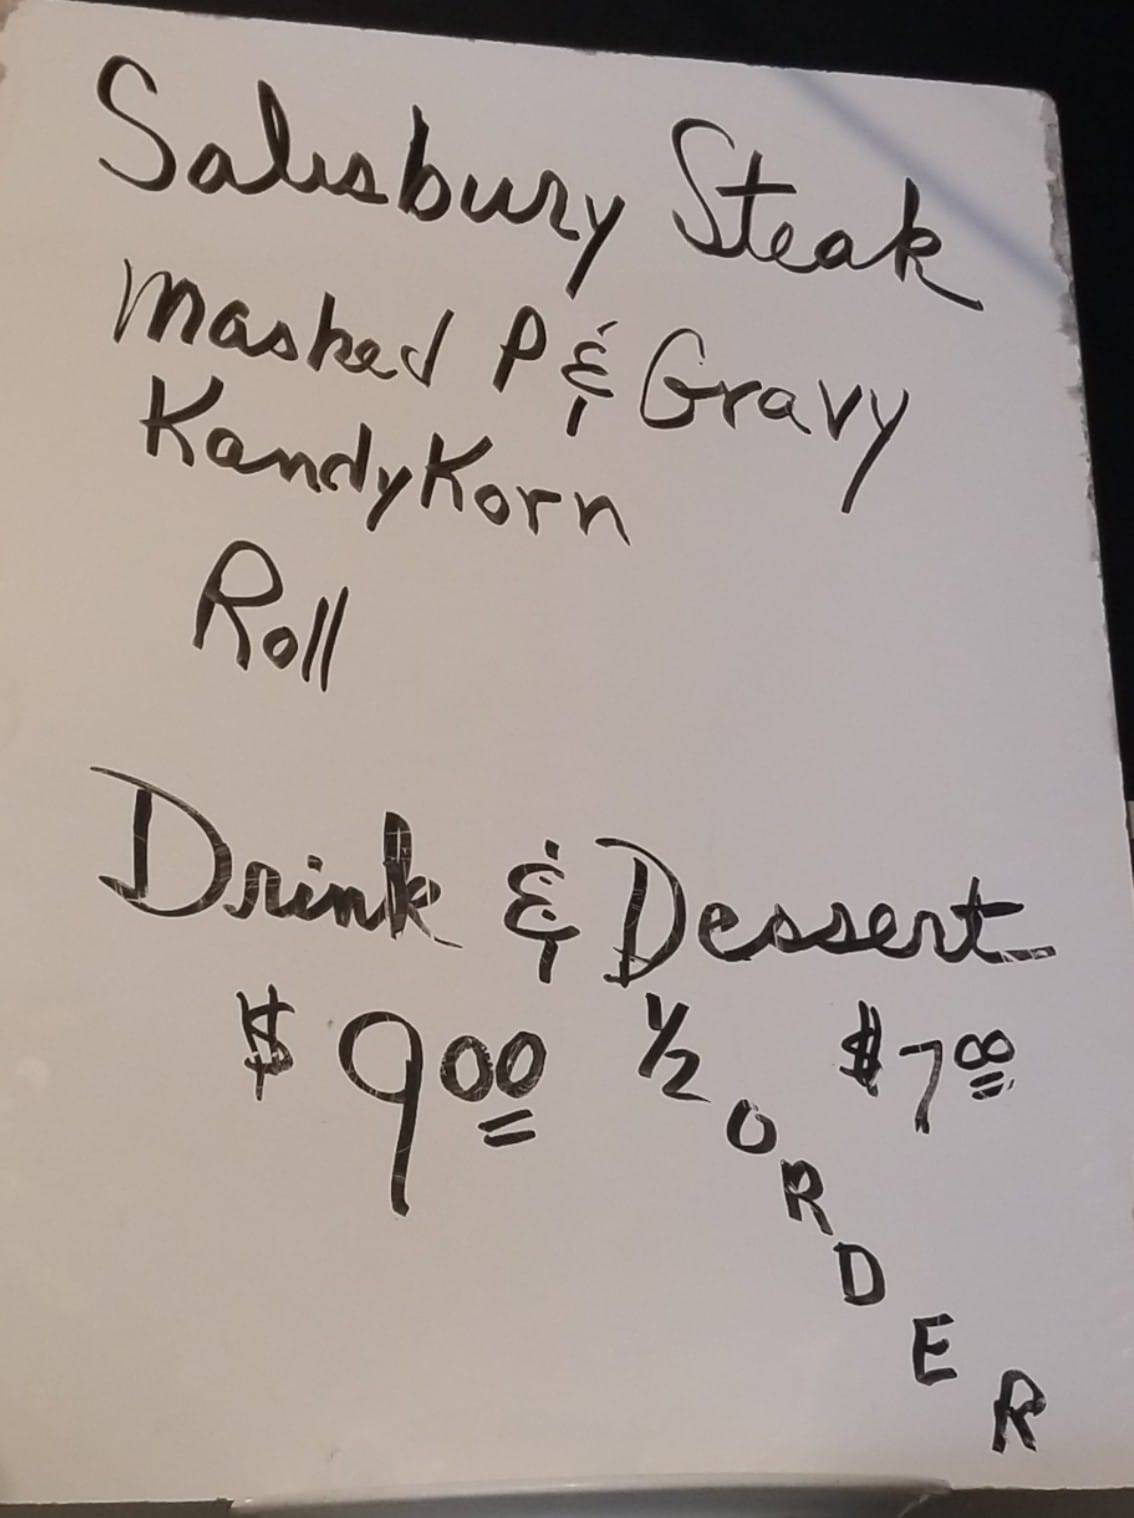 Salisbury Steak
Mashed P & Gravy
KandyKorn
Roll
Drink & Dessert
$ 9.00 1/2 ORDER $7.00